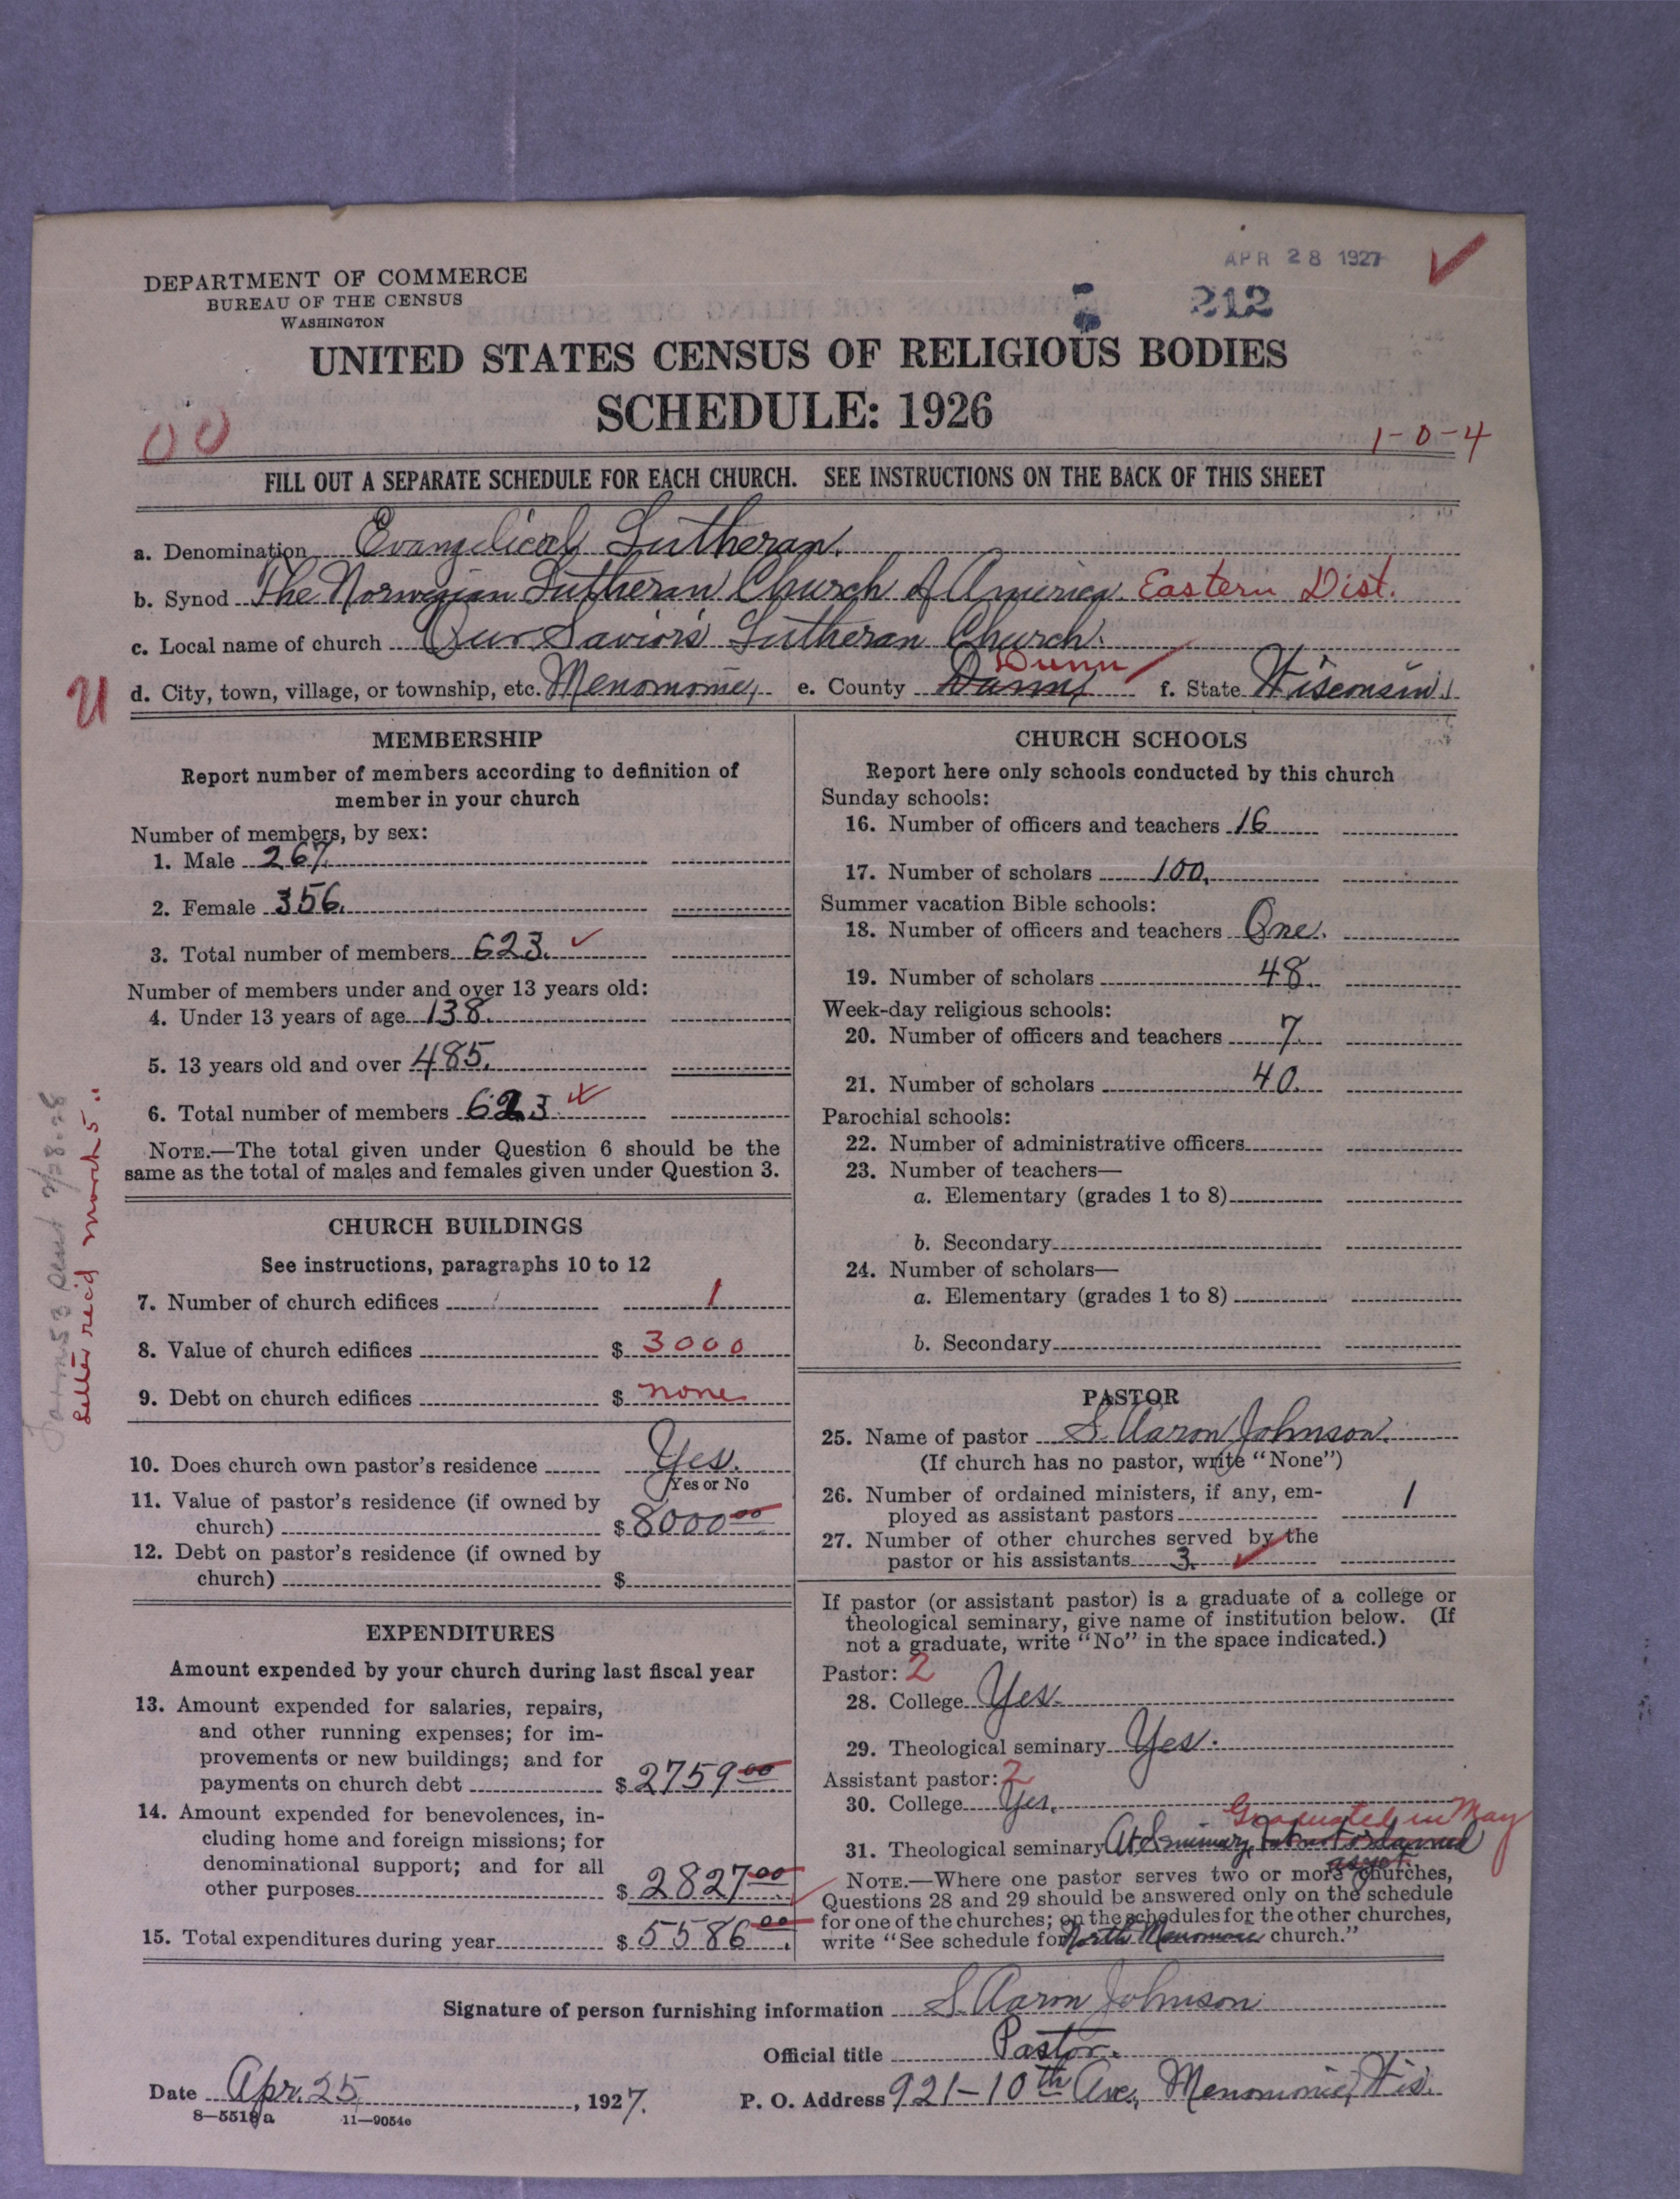 APR 28 1927
212
DEPARTMENT OF COMMERCE
BUREAU OF THE CENSUS
WASHINGTON
UNITED STATES CENSUS OF RELIGIOUS BODIES
SCHEDULE: 1926
00
1-0-4
FILL OUT A SEPARATE SCHEDULE FOR EACH CHURCH. SEE INSTRUCTIONS ON THE BACK OF THIS SHEET
a. Denomination Evangelical Lutheran.
b. Synod The Norwegian Lutheran Church of America. Eastern Dist.
c. Local name of church Our Savior's Lutheran Church.
Dunn
U d. City, town, village, or township, etc. Menomonie, e. County Dunn f. State Wisconsin.
MEMBERSHIP
Report number of members according to definition of
member in your church
Number of members, by sex:
1. Male 267.
2. Female 356.
3. Total number of members 623.
Number of members under and over 13 years old:
4. Under 13 years of age 138.
5. 13 years old and over 485.
6. Total number of members 623
NOTE.—The total given under Question 6 should be the
same as the total of males and females given under Question 3.
Letter rec'd March 5
CHURCH BUILDINGS
See instructions, paragraphs 10 to 12
7. Number of church edifices 1
8. Value of church edifices $ 3000
9. Debt on church edifices $ none
10. Does church own pastor's residence Yes.
Yes or No
11. Value of pastor's residence (if owned by
church) $ 8000 00
12. Debt on pastor's residence (if owned by
church) $
EXPENDITURES
Amount expended by your church during last fiscal year
13. Amount expended for salaries, repairs,
and other running expenses; for im-
provements or new buildings; and for
payments on church debt $ 2759 00
14. Amount expended for benevolences, in-
cluding home and foreign missions; for
denominational support; and for all
other purposes $ 2827 00
15. Total expenditures during year $ 5586 00
CHURCH SCHOOLS
Report here only schools conducted by this church
Sunday schools:
16. Number of officers and teachers 16
17. Number of scholars 100.
Summer vacation Bible schools:
18. Number of officers and teachers One.
19. Number of scholars 48.
Week-day religious schools:
20. Number of officers and teachers 7.
21. Number of scholars 40.
Parochial schools:
22. Number of administrative officers
23. Number of teachers—
a. Elementary (grades 1 to 8)
b. Secondary
24. Number of scholars—
a. Elementary (grades 1 to 8)
b. Secondary
PASTOR
25. Name of pastor S. Aaron Johnson.
(If church has no pastor, write "None")
26. Number of ordained ministers, if any, em-
ployed as assistant pastors 1
27. Number of other churches served by the
pastor or his assistants 3.
If pastor (or assistant pastor) is a graduate of a college or
theological seminary, give name of institution below. (If
not a graduate, write "No" in the space indicated.)
Pastor: 2
28. College Yes.
29. Theological seminary Yes.
Assistant pastor: 2
30. College Yes.
Graduated in May
31. Theological seminary At Seminary, but not ordained
as yet.
NOTE.—Where one pastor serves two or more churches,
Questions 28 and 29 should be answered only on the schedule
for one of the churches; on the schedules for the other churches,
write "See schedule for North Menomonie church."
Signature of person furnishing information S. Aaron Johnson
Official title Pastor.
Date Apr. 25, 1927. P. O. Address 921-10th Ave., Menomonie, Wis.
8—5518a 11—9054e